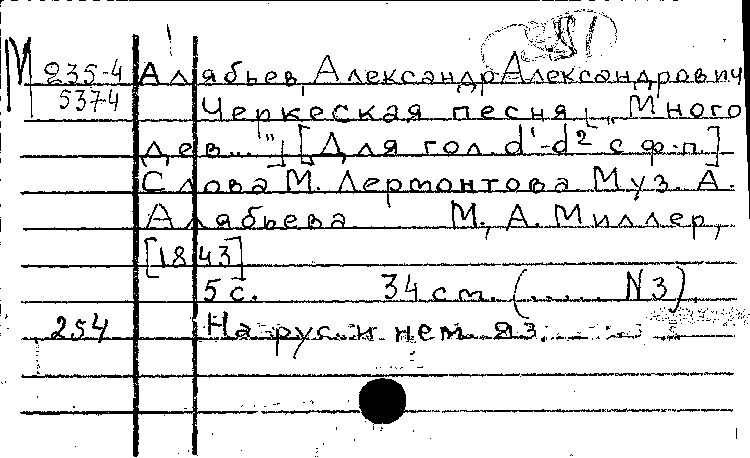 М 235-4 Алябьев, Александр Александрович
5374 Черкеская песня („Много
дев..."). [Для гол. d'-d² с ф-п.]
Слова М. Лермонтова Муз. А.
Алябьева М., А. Миллер,
[1843]
5 с. 34 см. (..... N3).
254 На рус. и нем. яз.